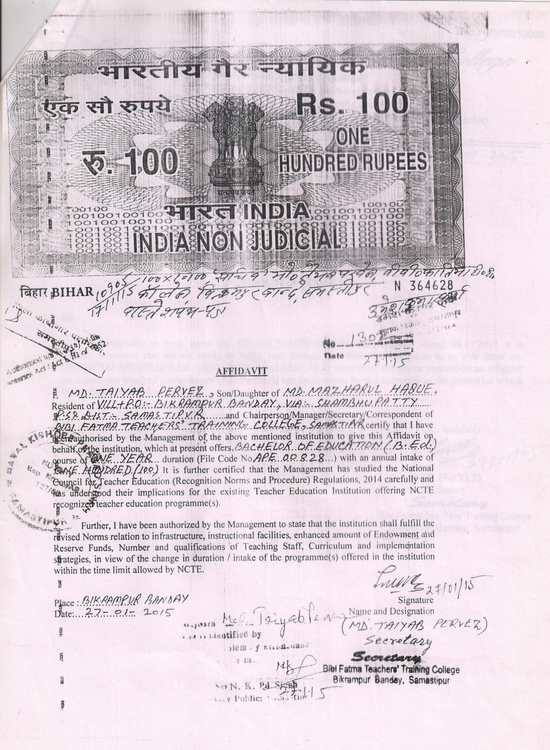 भारतीय गैर न्यायिक
एक सौ रुपये
Rs. 100
रु. 100
ONE
HUNDRED RUPEES
भारत INDIA
INDIA NON JUDICIAL
बिहार BIHAR
N 364628
No 1302
Date 27.1.15
AFFIDAVIT
I, MD. TAIYAB PERVEZ, Son/Daughter of MD. MAZHARUL HAQUE,
Resident of VILL+P.O:- BIKRAMPUR BANDAY, VIA:- SHAMBHUPATTY
DIST:- SAMASTIPUR and Chairperson/Manager/Secretary/Correspondent of
BIBI FATMA TEACHERS' TRAINING COLLEGE, SAMASTIPUR certify that I have
been authorised by the Management of the above mentioned institution to give this Affidavit on
behalf of the institution, which at present offers BACHELOR OF EDUCATION (B.Ed.)
course of ONE YEAR duration (File Code No APE 00828) with an annual intake of
ONE HUNDRED (100) It is further certified that the Management has studied the National
Council for Teacher Education (Recognition Norms and Procedure) Regulations, 2014 carefully and
has understood their implications for the existing Teacher Education Institution offering NCTE
recognized teacher education programme(s).
Further, I have been authorized by the Management to state that the institution shall fulfill the
revised Norms relation to infrastructure, instructional facilities, enhanced amount of Endowment and
Reserve Funds, Number and qualifications of Teaching Staff, Curriculum and implementation
strategies, in view of the change in duration / intake of the programme(s) offered in the institution
within the time limit allowed by NCTE.
27/01/15
Signature
Place: BIKRAMPUR BANDAY
Date: 27-01-2015
Md. Taiyab Pervez
Name and Designation
(MD. TAIYAB PERVEZ)
Secretary
identified by
Secretary
Bibi Fatma Teachers' Training College
Bikrampur Banday, Samastipur
N. K. Pd. Singh
27.1.15
Public